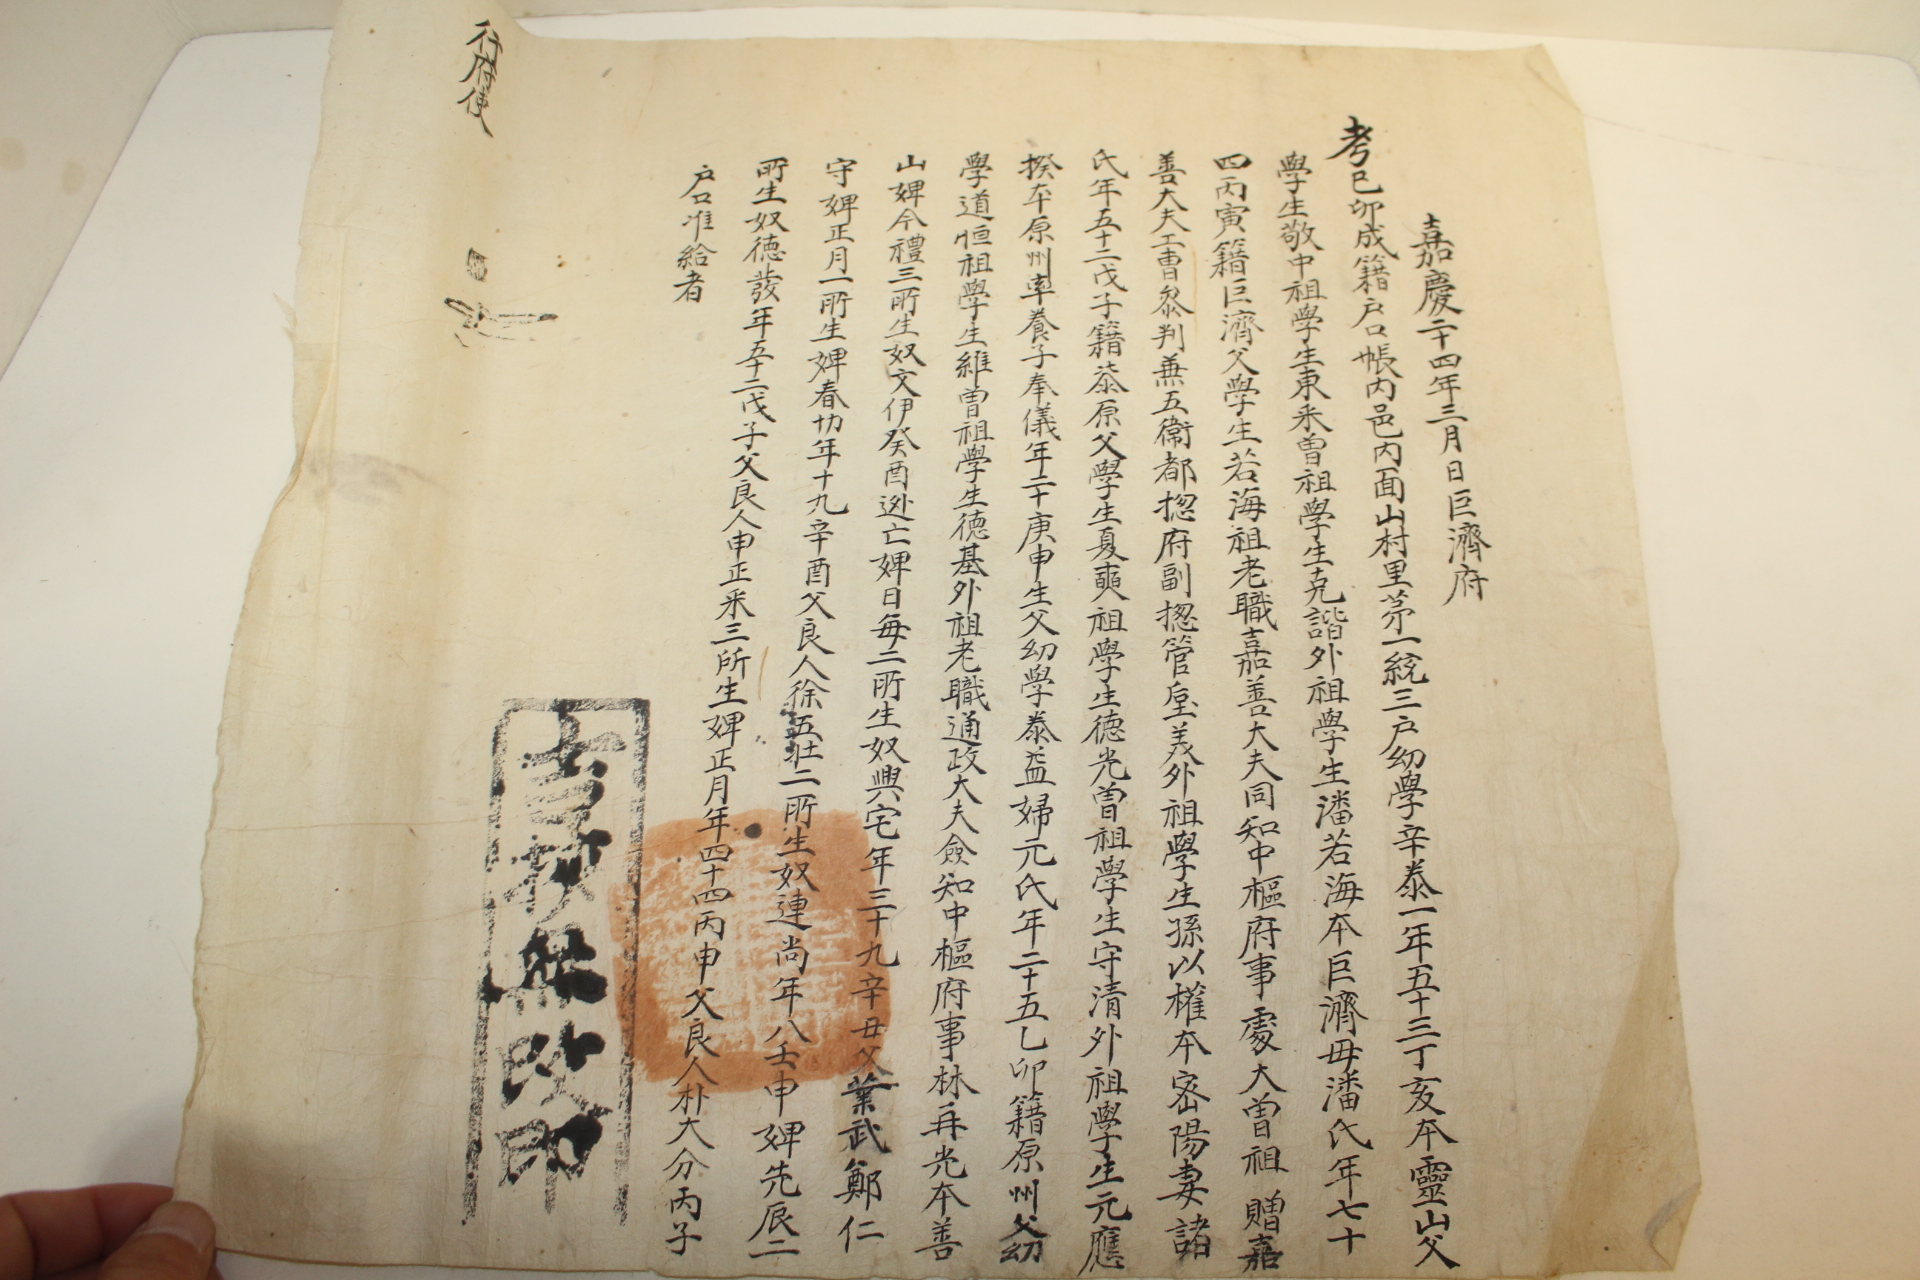 嘉慶二十四年三月日巨濟府
考己卯成籍户口帳內邑內面山村里第一統三户幼學辛泰一年五十三丁亥本靈山父
學生敬中祖學生東采曽祖學生克諧外祖學生潘若海本巨濟母潘氏年七十
四丙寅籍巨濟父學生若海祖老職嘉善大夫同知中樞府事處大曽祖 贈嘉
善大夫工曺叅判兼五衛都摠府副摠管垕美外祖學生孫以權本密陽妻諸
氏年五十二戊子籍漆原父學生夏奭祖學生德光曽祖學生守清外祖學生元應
揆本原州率養子奉儀年二十庚申生父幼學泰益婦元氏年二十五乙卯籍原州父幼
學道恒祖學生維曽祖學生德基外祖老職通政大夫僉知中樞府事林再光本善
山婢今禮三所生奴文伊癸酉逃亡婢日每二所生奴興宅年三十九辛丑父業武鄭仁
守婢正月一所生婢春切年十九辛酉父良人徐五壯二所生奴連尚年八壬申婢先辰二
所生奴德發年五十二戊子父良人申正采三所生婢正月年四十四丙申父良人朴大分丙子
户口准給者
行府使
周挾無改印